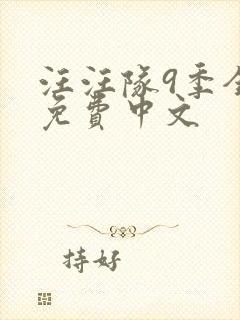 汪汪隊9季全
免費中文
持好